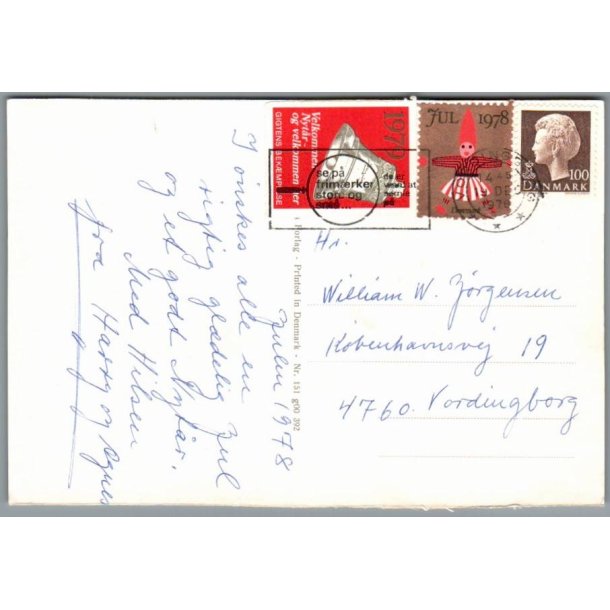 Julen 1978
I ønskes alle en
rigtig glædelig Jul
og et godt Nytår.
Med Hilsen
fra Harry og Agnes
i Forlag - Printed in Denmark - Nr. 151 g00 392
1979
Velkommen
Nytår-
og velkommen her
GIGTENS BEKÆMPELSE
se på
frimærker
store og
små...
de er
værd at
samle
på
JUL 1978
Danmark
100
DANMARK
Hr.
William W. Jörgensen
Københavnsvej 19
4760. Vordingborg